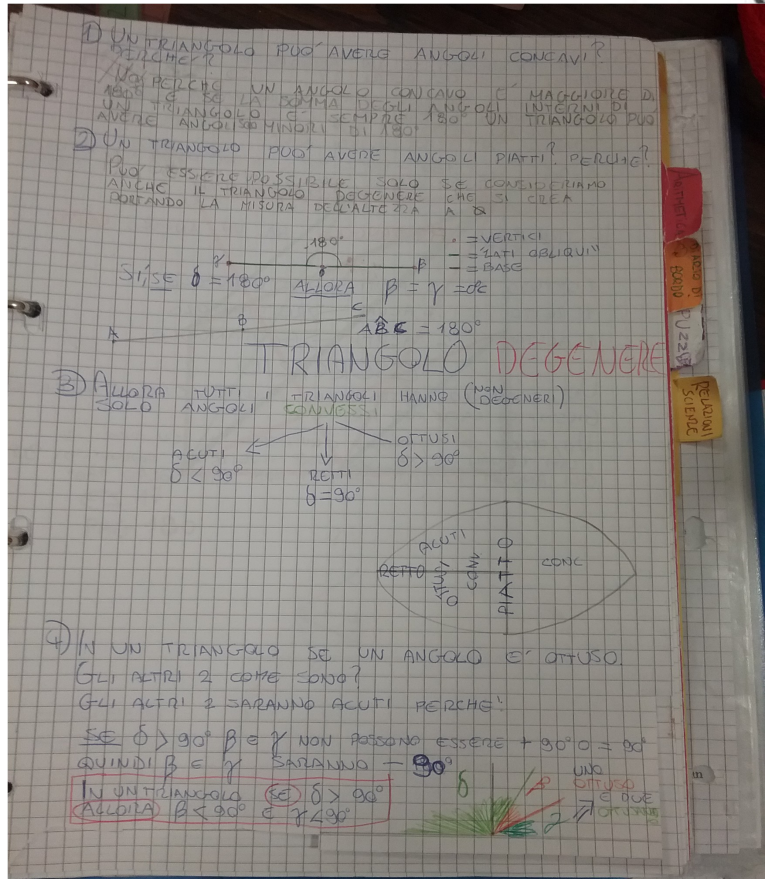 1) UN TRIANGOLO PUÓ AVERE ANGOLI CONCAVI?
PERCHÉ?
NO PERCHÉ UN ANGOLO CONCAVO É MAGGIORE DI
E SE LA SOMMA DEGLI ANGOLI INTERNI DI
UN TRIANGOLO É SEMPRE 180° UN TRIANGOLO PUÓ
AVERE ANGOLI SOLO MINORI DI 180°
2) UN TRIANGOLO PUÓ AVERE ANGOLI PIATTI? PERCHÉ?
PUÓ ESSERE POSSIBILE SOLO SE CONSIDERIAMO
ANCHE IL TRIANGOLO DEGENERE CHE SI CREA
PORTANDO LA MISURA DELL'ALTEZZA A
180°
γ
β
= VERTICI
= LATI OBLIQUI
= BASE
SÍ, SE δ = 180° ALLORA β = γ =
A
B
C
AB̂C = 180°
TRIANGOLO DEGENERE
3) ALLORA TUTTI I TRIANGOLI HANNO (NON DEGENERI)
SOLO ANGOLI CONVESSI
ACUTI
δ < 90°
RETTI
δ = 90°
OTTUSI
δ > 90°
ACUTI
RETTO
OTTUSI
CONV
PIATTO
CONC
4) IN UN TRIANGOLO SE UN ANGOLO É OTTUSO
GLI ALTRI 2 COME SONO?
GLI ALTRI 2 SARANNO ACUTI PERCHÉ:
SE δ > 90° β E γ NON POSSONO ESSERE + 90° O = 90°
QUINDI β E γ SARANNO - 90°
IN UN TRIANGOLO SE δ > 90°
ALLORA β < 90° E γ < 90°
δ
UNO
OTTUSO
E DUE
ARITMETICA
PUZZLE
RELAZIONI
SCIENZE